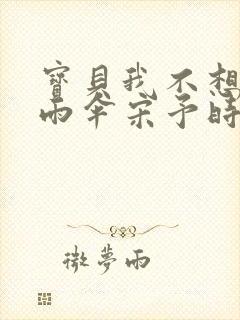 寶貝我不想
雨傘宋予時
微夢雨